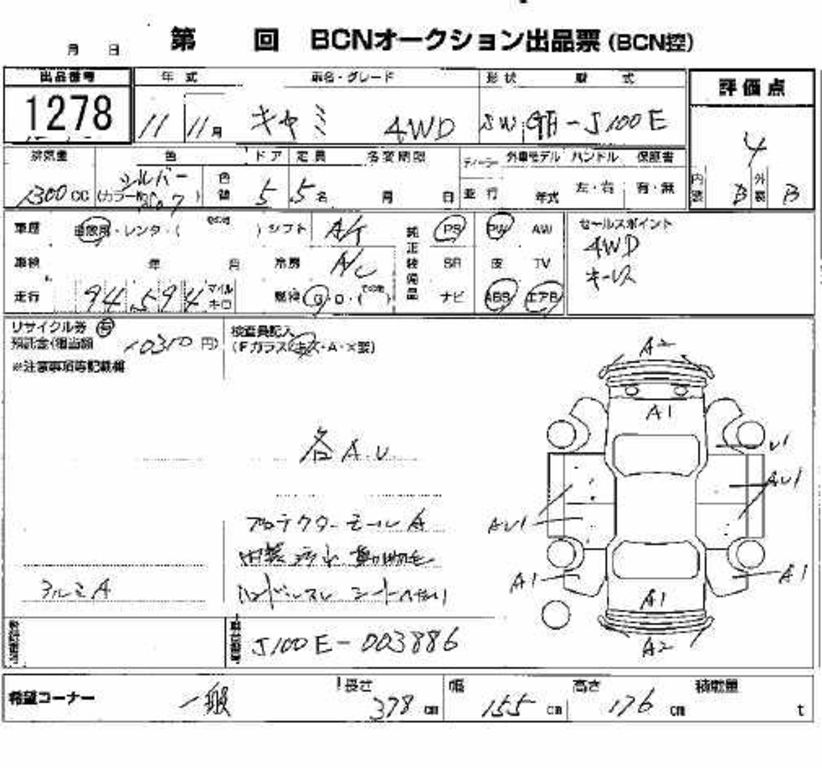 月 日 第 回 BCNオークション出品票(BCN控)
出品番号 年式 車名・グレード 形状 型式 評価点
1278 11 11月 キャミ 4WD SW GH-J100E 4
排気量 色 ドア 定員 名変期限 ディーラー 外車モデル ハンドル 保証書
1300cc シルバー (カラー 色替 5 5名 月 日 並行 年式 左・右 有・無 内装 B 外装 B
車歴 自家用・レンタ・(その他 ) シフト A/T 純正装備品 PS PW AW セールスポイント
4WD
車検 年 月 冷房 A/C SR 皮 TV キーレス
走行 94,594 マイル キロ 燃料 G・D・(その他 ) ナビ ABS エアB
リサイクル券 有 検査員記入
預託金(相当額 10310円) (Fガラス(キズ・A・×要)
※注意事項等記載欄
A2
A1
各A.U
U1
AU1
AU1
プロテクターモールA
内装汚れ 動物毛
アルミA ハンドルスレ シートヘタリ
A1 A1
A1
A2
J100E-003886
希望コーナー 一般 長さ 378cm 幅 155cm 高さ 176cm 積載量 t